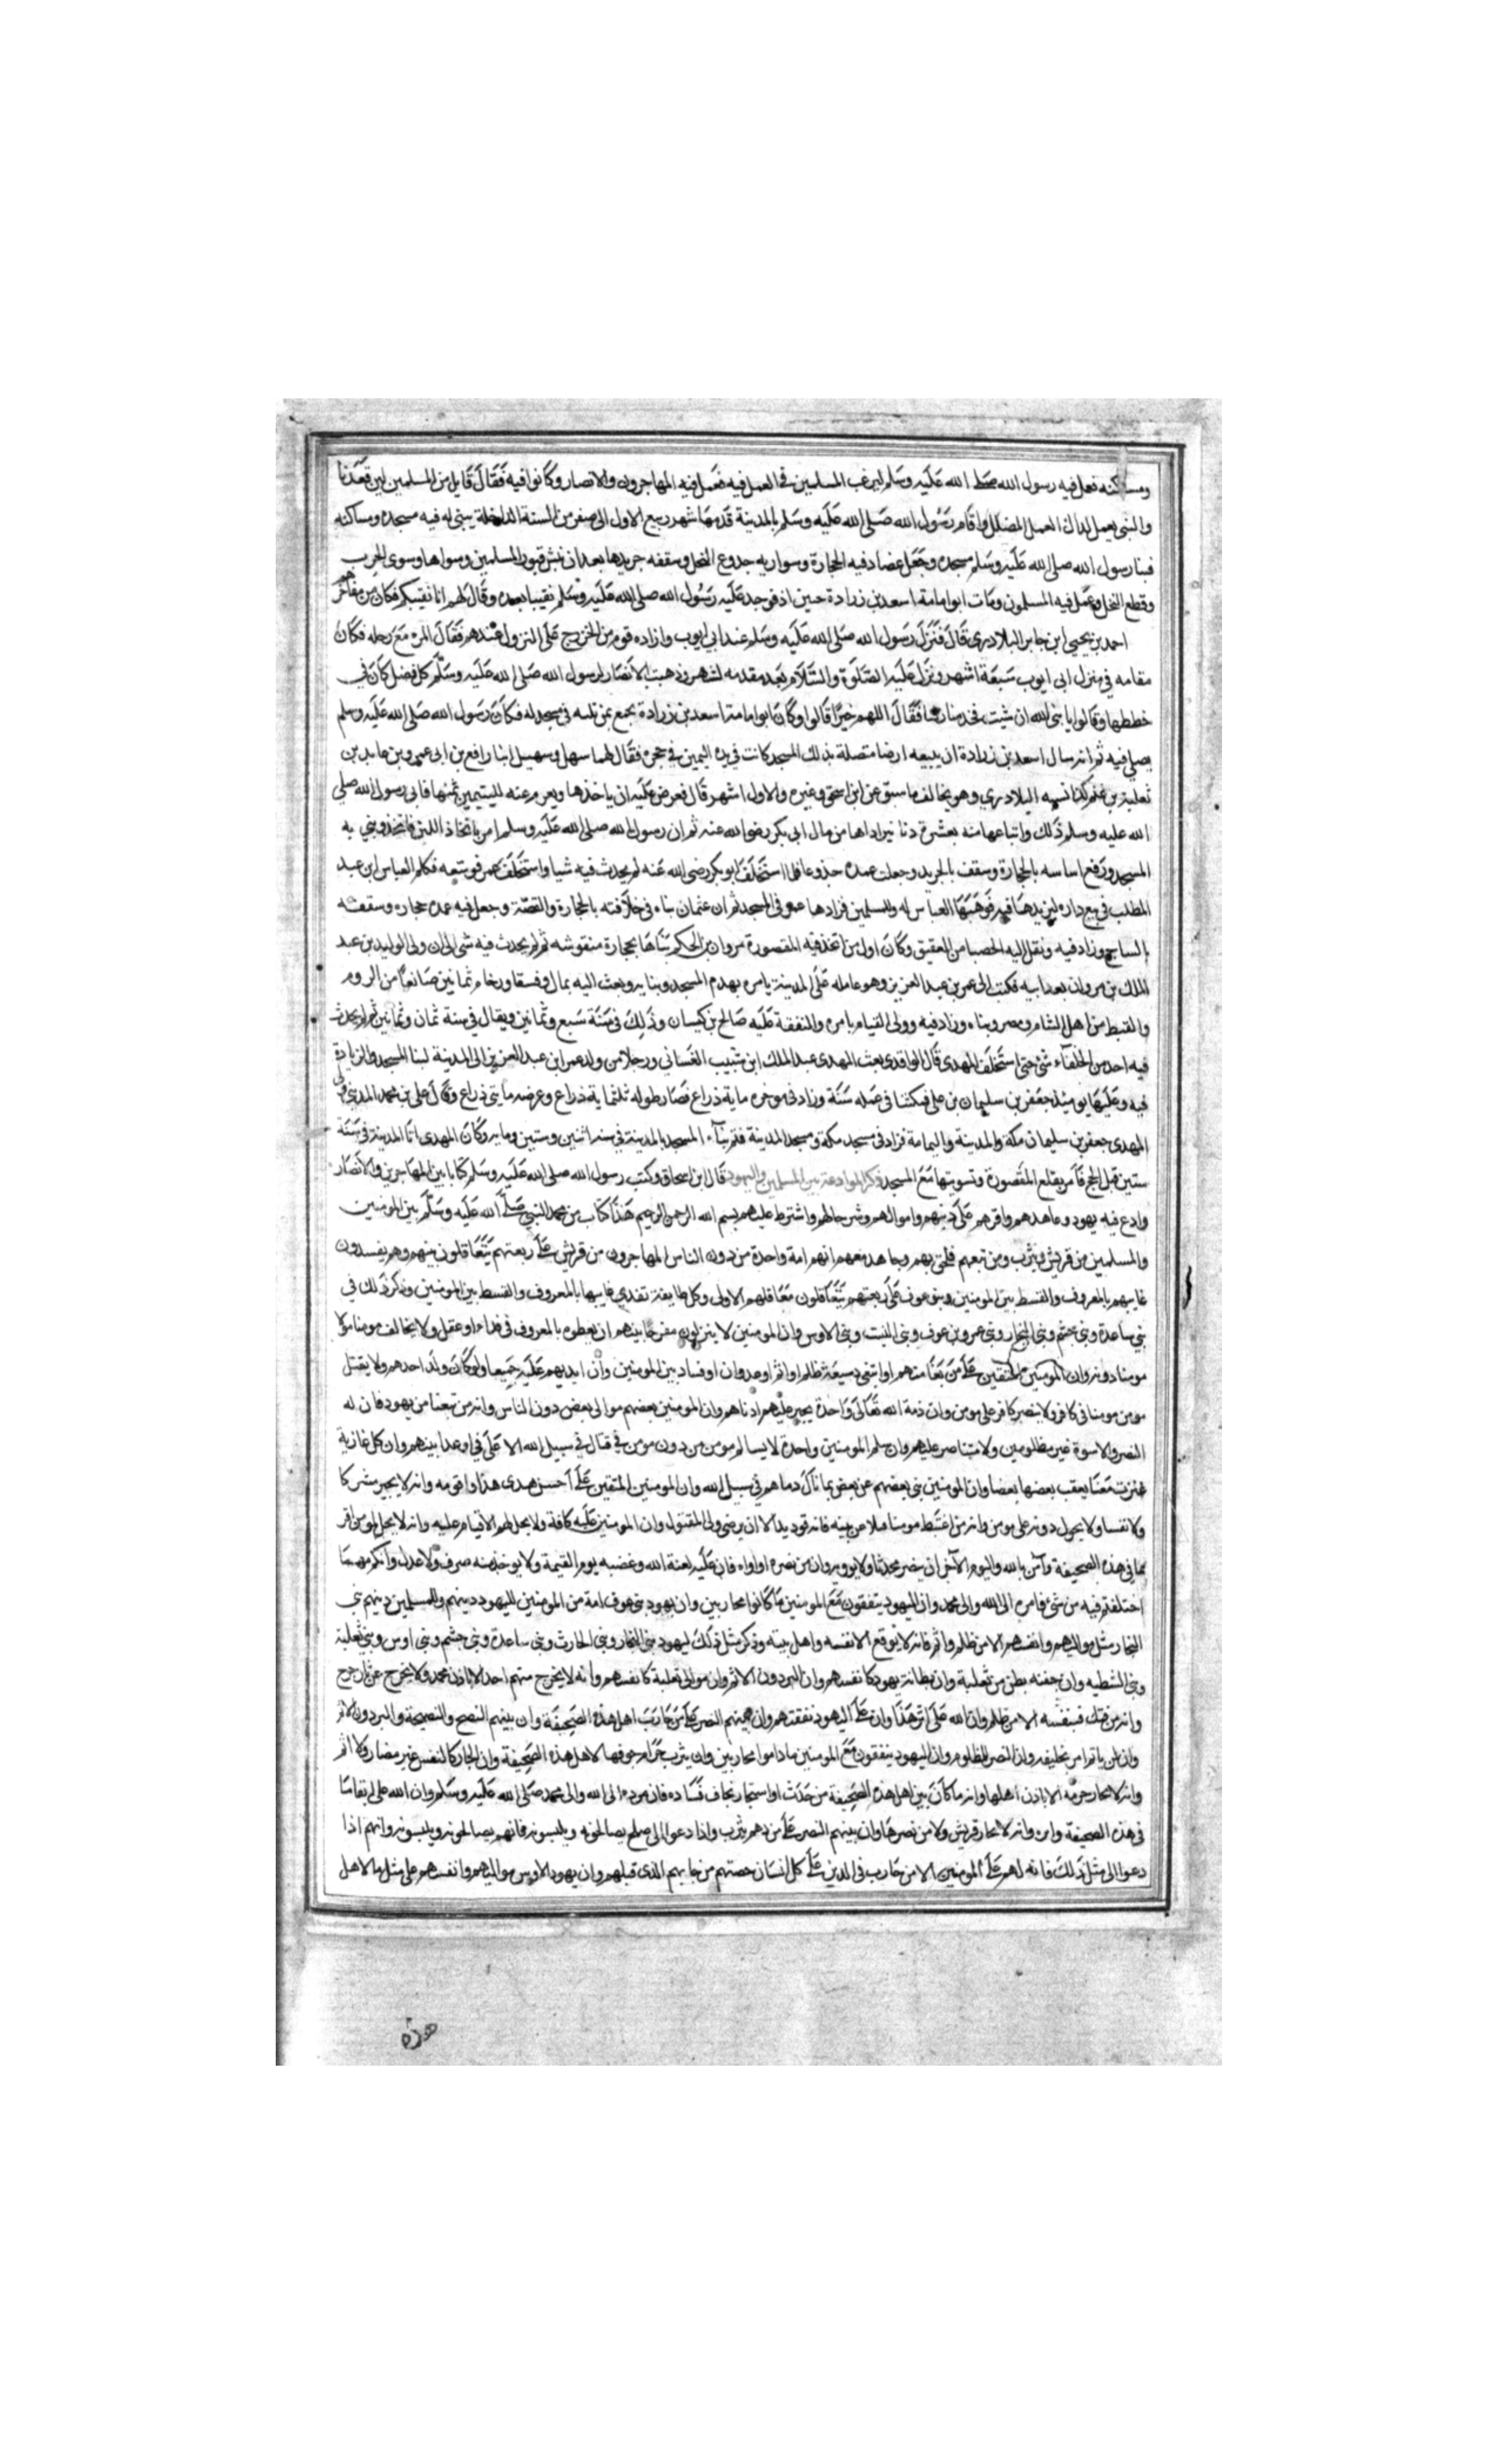 ومساكنه فعل فيه رسول الله صلى الله عليه وسلم ليرغب المسلمين في العمل فيه فعمل فيه المهاجرون والانصار وكانوا فيه فقال قايل من المسلمين لين قعدنا
والنبي يعمل لذاك العمل المضلل واقام رسول الله صلى الله عليه وسلم بالمدينة قدمها شهر ربيع الاول الى صفر من السنة الداخلة يبنى له فيه مسجده ومساكنه
فبنا رسول الله صلى الله عليه وسلم مسجده وجعل عضادفيه الحجارة وسواريه جدوع النخل وسقفه جريدها بعد ان نبش قبور المسلمين وسواها وسوى الخرب
وقطع النخل وعمل فيه المسلمون ومات ابو امامة اسعد بن زرادة حين اذ فوجد عليه رسول الله صلى الله عليه وسلم نقيبا بعده وقال لهم انا نقيبكم فكان من مفاخرهم
احمد بن يحيى ابن جابر البلادري قال فنزل رسول الله صلى الله عليه وسلم عند ابي ايوب واراده قوم من الخزرج على النزول عندهم فقال المرء مع رحله فكان
مقامه في منزل ابي ايوب سبعة اشهر ونزل عليه الصلوة والسلام بعد مقدمه لشهر وذهبت الانصار لرسول الله صلى الله عليه وسلم كل فضل كان في
خططها وقالوا يا نبي الله ان شيت فخذ منازلنا فقال اللهم خيرا قالوا وكان ابو امامة اسعد بن زرادة يجمع بمن تلسه في مسجد له فكان رسول الله صلى الله عليه وسلم
يصلي فيه ثم انه سال اسعد بن زرادة ان يبيعه ارضا متصلة بذلك المسجد كانت في يده اليمين في حجره فقال لهما سهل وسهيل ابنا رافع بن ابي عمرو بن عايد بن
ثعلبة بن غنم كذا نسبه البلادري وهو يخالف ما سبق عن ابن اسحق وغيره والاول اشهر قال فعرض عليه ان ياخذها ويغرم عنه لليتيمين ثمنها فابى رسول الله صلى
الله عليه وسلم ذلك وابتاعها منه بعشرة دنانير اداها من مال ابي بكر رضي الله عنه ثم ان رسول الله صلى الله عليه وسلم امر باتخاذ اللبن فاتخذ وبني به
المسجد ورفع اساسه بالحجارة وسقف بالجريد وجعلت عمده جذوعا فلما استخلف ابو بكر رضي الله عنه لم يحدث فيه شيا واستخلف عمر فوسعه فكلم العباس ابن عبد
المطلب في بيع داره ليزيدها فيه فوهبها العباس له وللمسلمين فزادها عمر في المسجد ثم ان عثمان بناه في خلافته بالحجارة والقصة وجعل فيه عمده حجاره وسقفه
بالساج وزاد فيه ونقل اليه الحصبا من العقيق وكان اول من اتخذ فيه المقصورة مروان بن الحكم بناها بحجارة منقوشه ثم لم يحدث فيه شي الى ان ولى الوليد بن عبد
الملك بن مروان بعد ابيه فكتب الى عمر بن عبد العزيز وهو عامله على المدينة يامره بهدم المسجد وبنايه وبعث اليه بمال وفسقا ورخام ثمانين صانعا من الروم
والقبط من اهل الشام ومصر وبناه وزاد فيه وولى القيام بامره والنفقة عليه صالح بن كيسان وذلك في سنة سبع وثمانين ويقال في سنة ثمان وثمانين ثم لم يحدث
فيه احد من الخلفاء شي حتى استخلف المهدي قال الواقدي بعث المهدي عبد الملك ابن شبيب الغساني ورجلا من ولد عمر ابن عبد العزيز الى المدينة لبنا المسجد والزيادة
فيه وعليها يوميذ جعفر بن سليمان بن علي فمكثنا في عمله سنة وزاد في موخره ماية ذراع فصار طوله ثلثماية ذراع وعرضه مايتي ذراع وقال علي بن محمد المديني ولى
المهدي جعفر بن سليمان مكة والمدينة واليمامة فزاد في مسجد مكة ومسجد المدينة فتم بناء المسجد بالمدينة في سنه اثنين وستين وماية وكان المهدي اتا المدينة في سنة
ستين قبل الحج فامر بقلع المقصورة وتسويتها مع المسجد ذكر الموادعة بين المسلمين واليهود قال ابن اسحاق وكتب رسول الله صلى الله عليه وسلم كتابا بين المهاجرين والانصار
وادع فيه يهود وعاهدهم واقرهم على دينهم واموالهم وشرط لهم واشترط عليهم بسم الله الرحمن الرحيم هذا كتاب من محمد النبي صلى الله عليه وسلم بين المومنين
والمسلمين من قريش ويثرب ومن تبعهم فلحق بهم وجاهد معهم انهم امة واحدة من دون الناس المهاجرون من قريش على ربعتهم يتعاقلون بينهم وهم يفسدون
عانيهم بالمعروف والقسط بين المومنين وبنو عوف على ربعتهم يتعاقلون معاقلهم الاولى وكل طايفة تفدي عانيها بالمعروف والقسط بين المومنين وذكر ذلك في
بني ساعدة وبني جشم وبني النجار وبني عمرو بن عوف وبني النبيت وبني الاوس وان المومنين لا يتركون مفرحا بينهم ان يعطوه بالمعروف في فداء او عقل ولا يخالف مومنا مولا
مومنا دونه وان المومنين المتقين على من بغا منهم او ابتغى دسيعة ظلم او اثم او عدوان او فساد بين المومنين وان ايديهم عليه جميعا ولو كان ولد احدهم ولا يقتل
مومن مومنا في كافر ولا ينصر كافر على مومن وان ذمة الله تعالى واحدة يجير عليهم ادناهم وان المومنين بعضهم موالي بعض دون الناس وانه من تبعنا من يهود فان له
النصر والاسوة غير مظلومين ولا متناصر عليهم وان سلم المومنين واحدة لا يسالم مومن من دون مومن في قتال في سبيل الله الا على سوا وعدل بينهم وان كل غازية
غزت معنا يعقب بعضها بعضا وان المومنين بني بعضهم عن بعض بما نال دماهم في سبيل الله وان المومنين المتقين على احسن هدى هذا واقومه وانه لا يجير مشركا
ولا نفسا ولا يحول دونه على مومن وانه من اغتبط مومنا قتلا عن بينه فانه قود به الا ان يرضى ولي المقتول وان المومنين عليه كافة ولا يحل لهم الا قيام عليه وانه لا يحل لمومن اقر
بما في هذه الصحيفة وآمن بالله واليوم الآخر ان ينصر محدثا ولا يوويه وان من نصره او اواه فان عليه لعنة الله وغضبه يوم القيمة ولا يوخذ منه صرف ولا عدل وانكم مهما
اختلفتم فيه من شي فامره الى الله والى محمد وان اليهود يتفقون مع المومنين ما كانوا محاربين وان يهود بني عوف امة من المومنين لليهود دينهم وللمسلمين دينهم بني
النجار مثل مواليهم وانفسهم الا من ظلم واثم فانه لا يوقع الا نفسه واهل بيته وذكر مثل ذلك ليهود بني النجار وبني الحارث وبني ساعدة وبني جشم وبني اوس وبني ثعلبة
وبني الشطيه وان جفنه بطن من ثعلبة وان بطانة يهود كانفسهم وان البر دون الاثم وان موالي ثعلبة كانفسهم وانه لا يخرج منهم احد الا باذن محمد ولا ينحجز عن ثار جرح
وانه من فتك فبنفسه الا من ظلم وان الله على اثر هذا وان على اليهود نفقتهم وان بينهم النصر على من حارب اهل هذه الصحيفة وان بينهم النصح والنصيحة والبر دون الاثم
وان لن ياثم امر بحليفه وان النصر للمظلوم وان اليهود ينفقون مع المومنين ما داموا محاربين وان يثرب حرام جوفها لاهل هذه الصحيفة وان الجار كالنفس غير مضار ولا اثم
وانه لا تجار حرمة الا باذن اهلها وانه ما كان بين اهل هذه الصحيفة من حدث او استجار نخاف فساده فان مرده الى الله والى محمد صلى الله عليه وسلم وان الله على اتقا ما
في هذه الصحيفة وابره وانه لا تجار قريش ولا من نصرها وان بينهم النصر على من دهم يثرب واذا دعوا الى صلح يصالحونه ويلبسونه فانهم يصالحونه ويلبسونه وانهم اذا
دعوا الى مثل ذلك فانه لهم على المومنين الا من حارب في الدين على كل انسان حصتهم من جانبهم الذي قبلهم وان يهود الاوس مواليهم وانفسهم على مثل ما لاهل
هذه